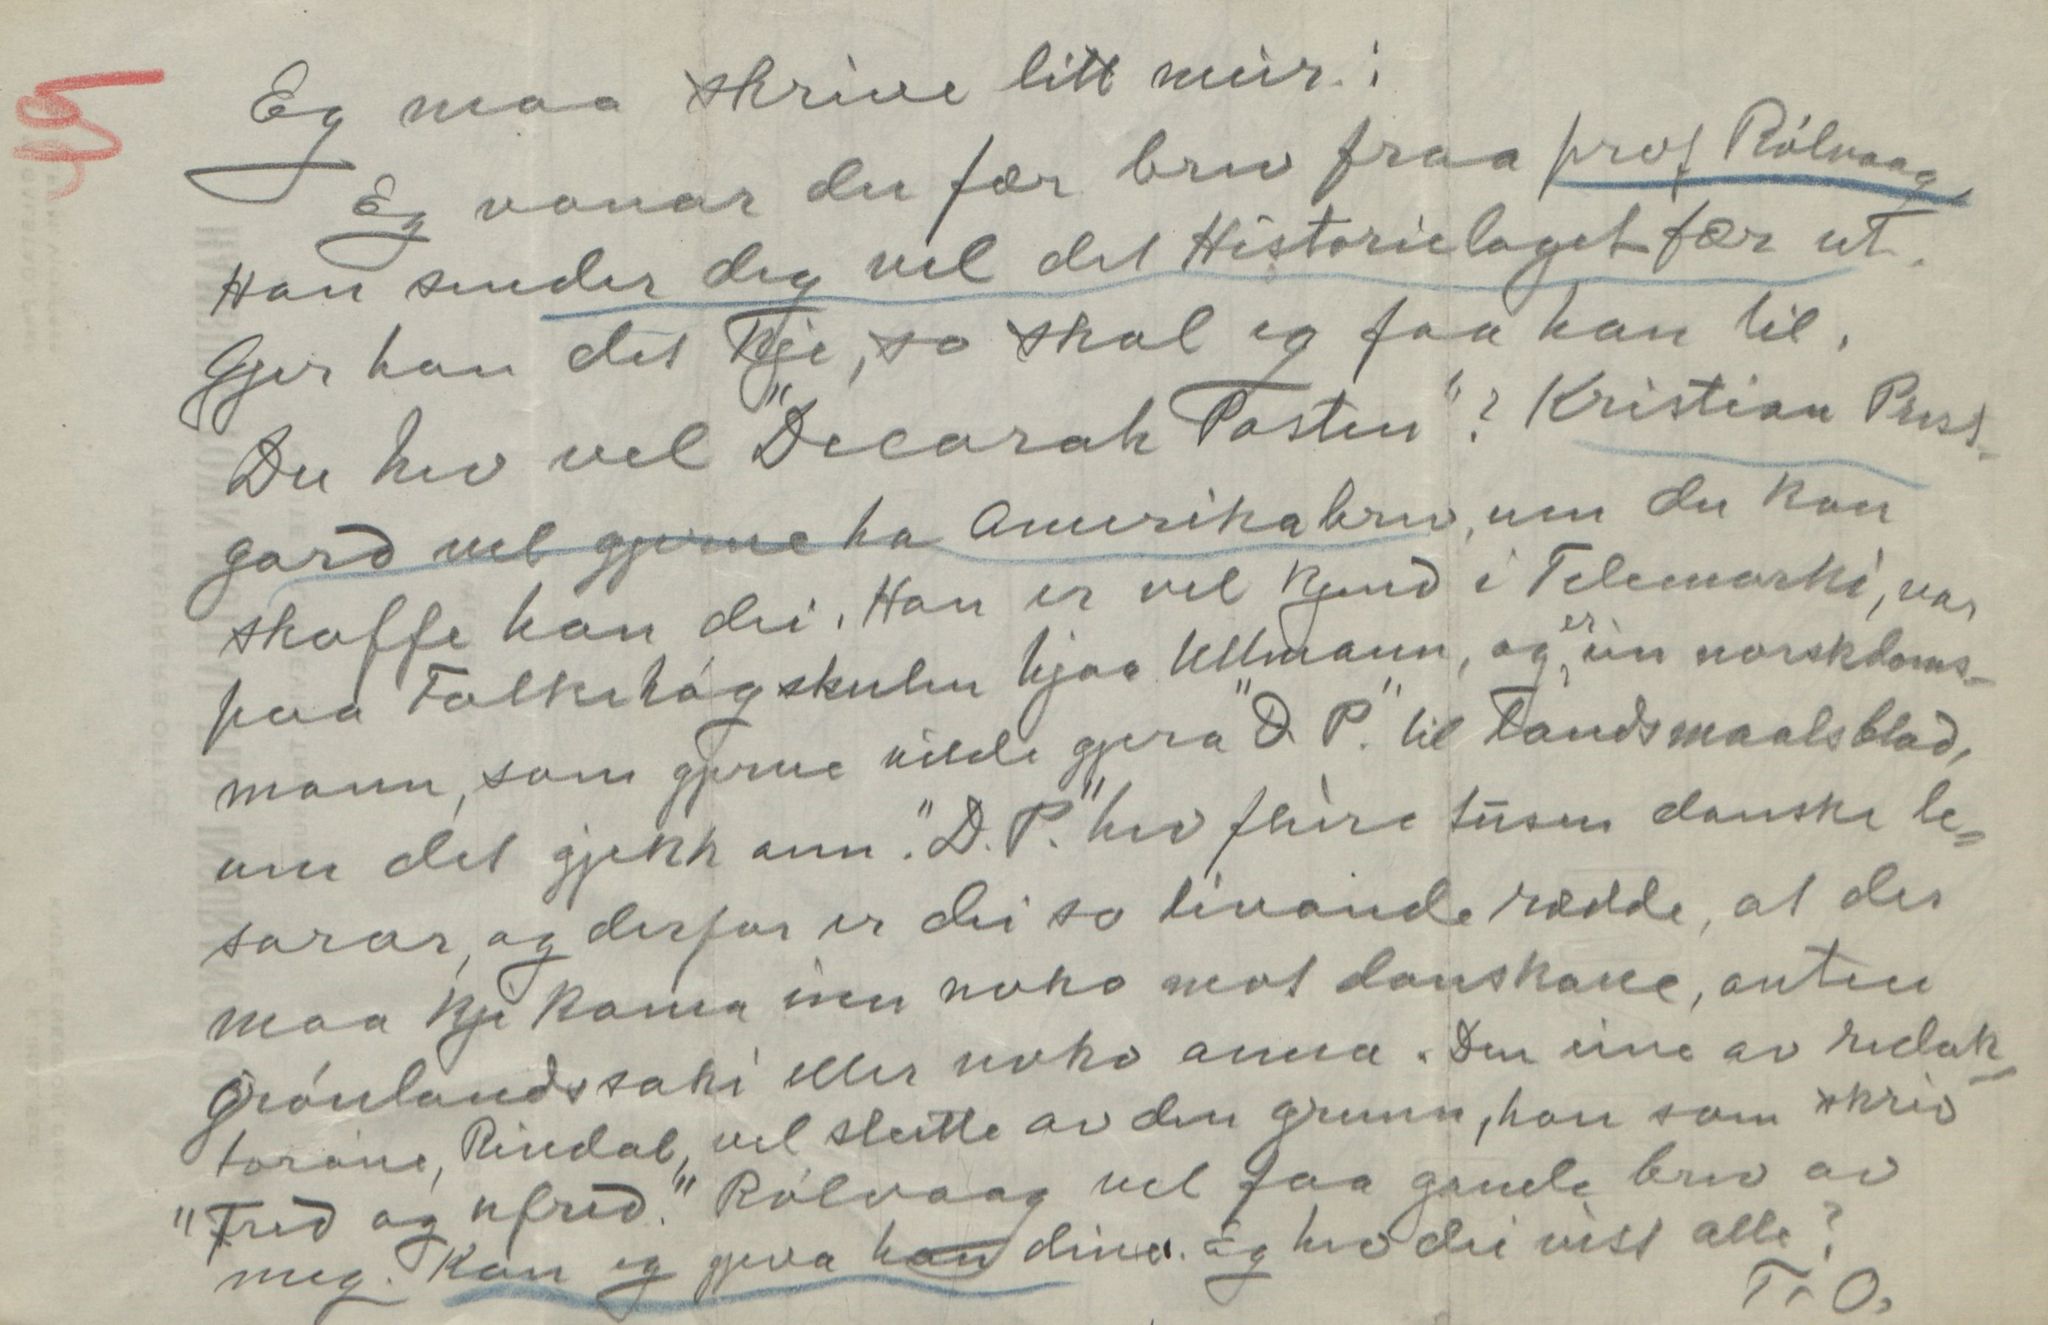 Eg maa skrive litt meir.:
Eg vonar du fær brev fraa prof Rólvaag,
Han sender deg vel det Historielaget fær ut.
Gjer han det kje, so skal eg faa han til.
Du hev vel "Decorah Posten"? Kristian Prest-
gard vil gjerne ha Amerikabrev, um du kan
skaffe han dei. Han er vel kjend i Telemarki, var
paa Folkehógskulen hjaa Ullmann, og er ein norskdoms-
mann, som gjerne vilde gjera "D. P." til Landsmaalsblad,
um det gjekk ann. "D. P." hev fleire tusen danske le-
sarar, og derfor er dei so livande rædde, at det
maa kje koma inn noko mot danskane, anten
Grónlandssaki eller noko anna. Den eine av redak-
torane, Rindal, vil slutte av den grunn, han som skriv
"Fred og ufred." Rólvaag vil faa gamle brev av
meg. Kan eg gjeva han dine. Eg hev dei visst alle?
T. O.